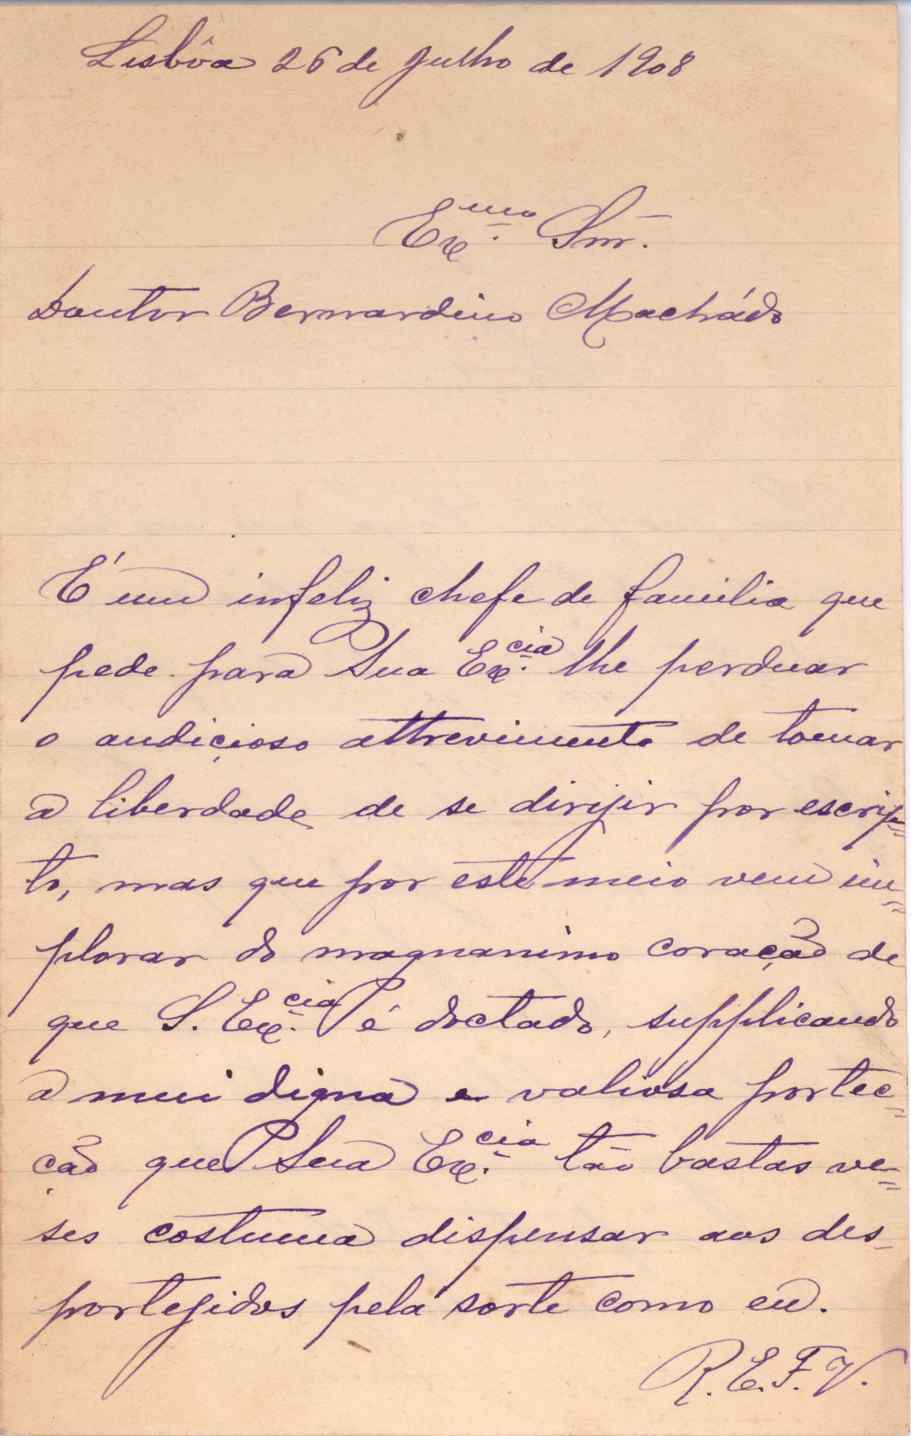 Lisbôa 26 de Julho de 1908
Ex.mo Snr.
Doutor Bernardino Machádo
É um infeliz chefe de familia que
pede para Sua Ex.cia lhe perduar
o audiçioso attrevimento de tomar
a liberdade de se dirijir por escrip=
to, mas que por este meio vem im=
plorar do magnanimo coração de
que S. Ex.cia é doctado, supplicando
a mui digna e valiosa portec=
ção que Sua Ex.cia tão bastas ve=
ses costuma dispensar aos des=
portegidos pela sorte como eu.
R. E. F. V.